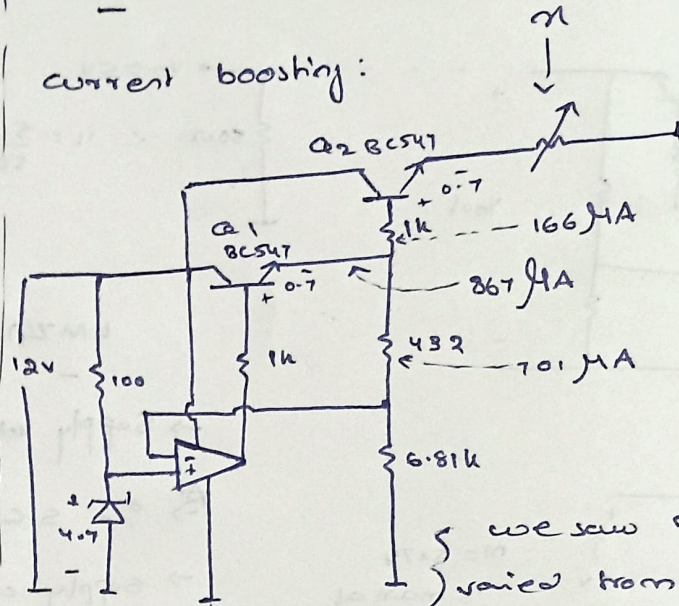 x
current boosting:
Q2 BC547
+ 0.7
1k
166 μA
Q1
BC547
+ 0.7
867 μA
12v
100
1k
432
701 μA
- +
6.81k
4.7
{ we saw
varied from